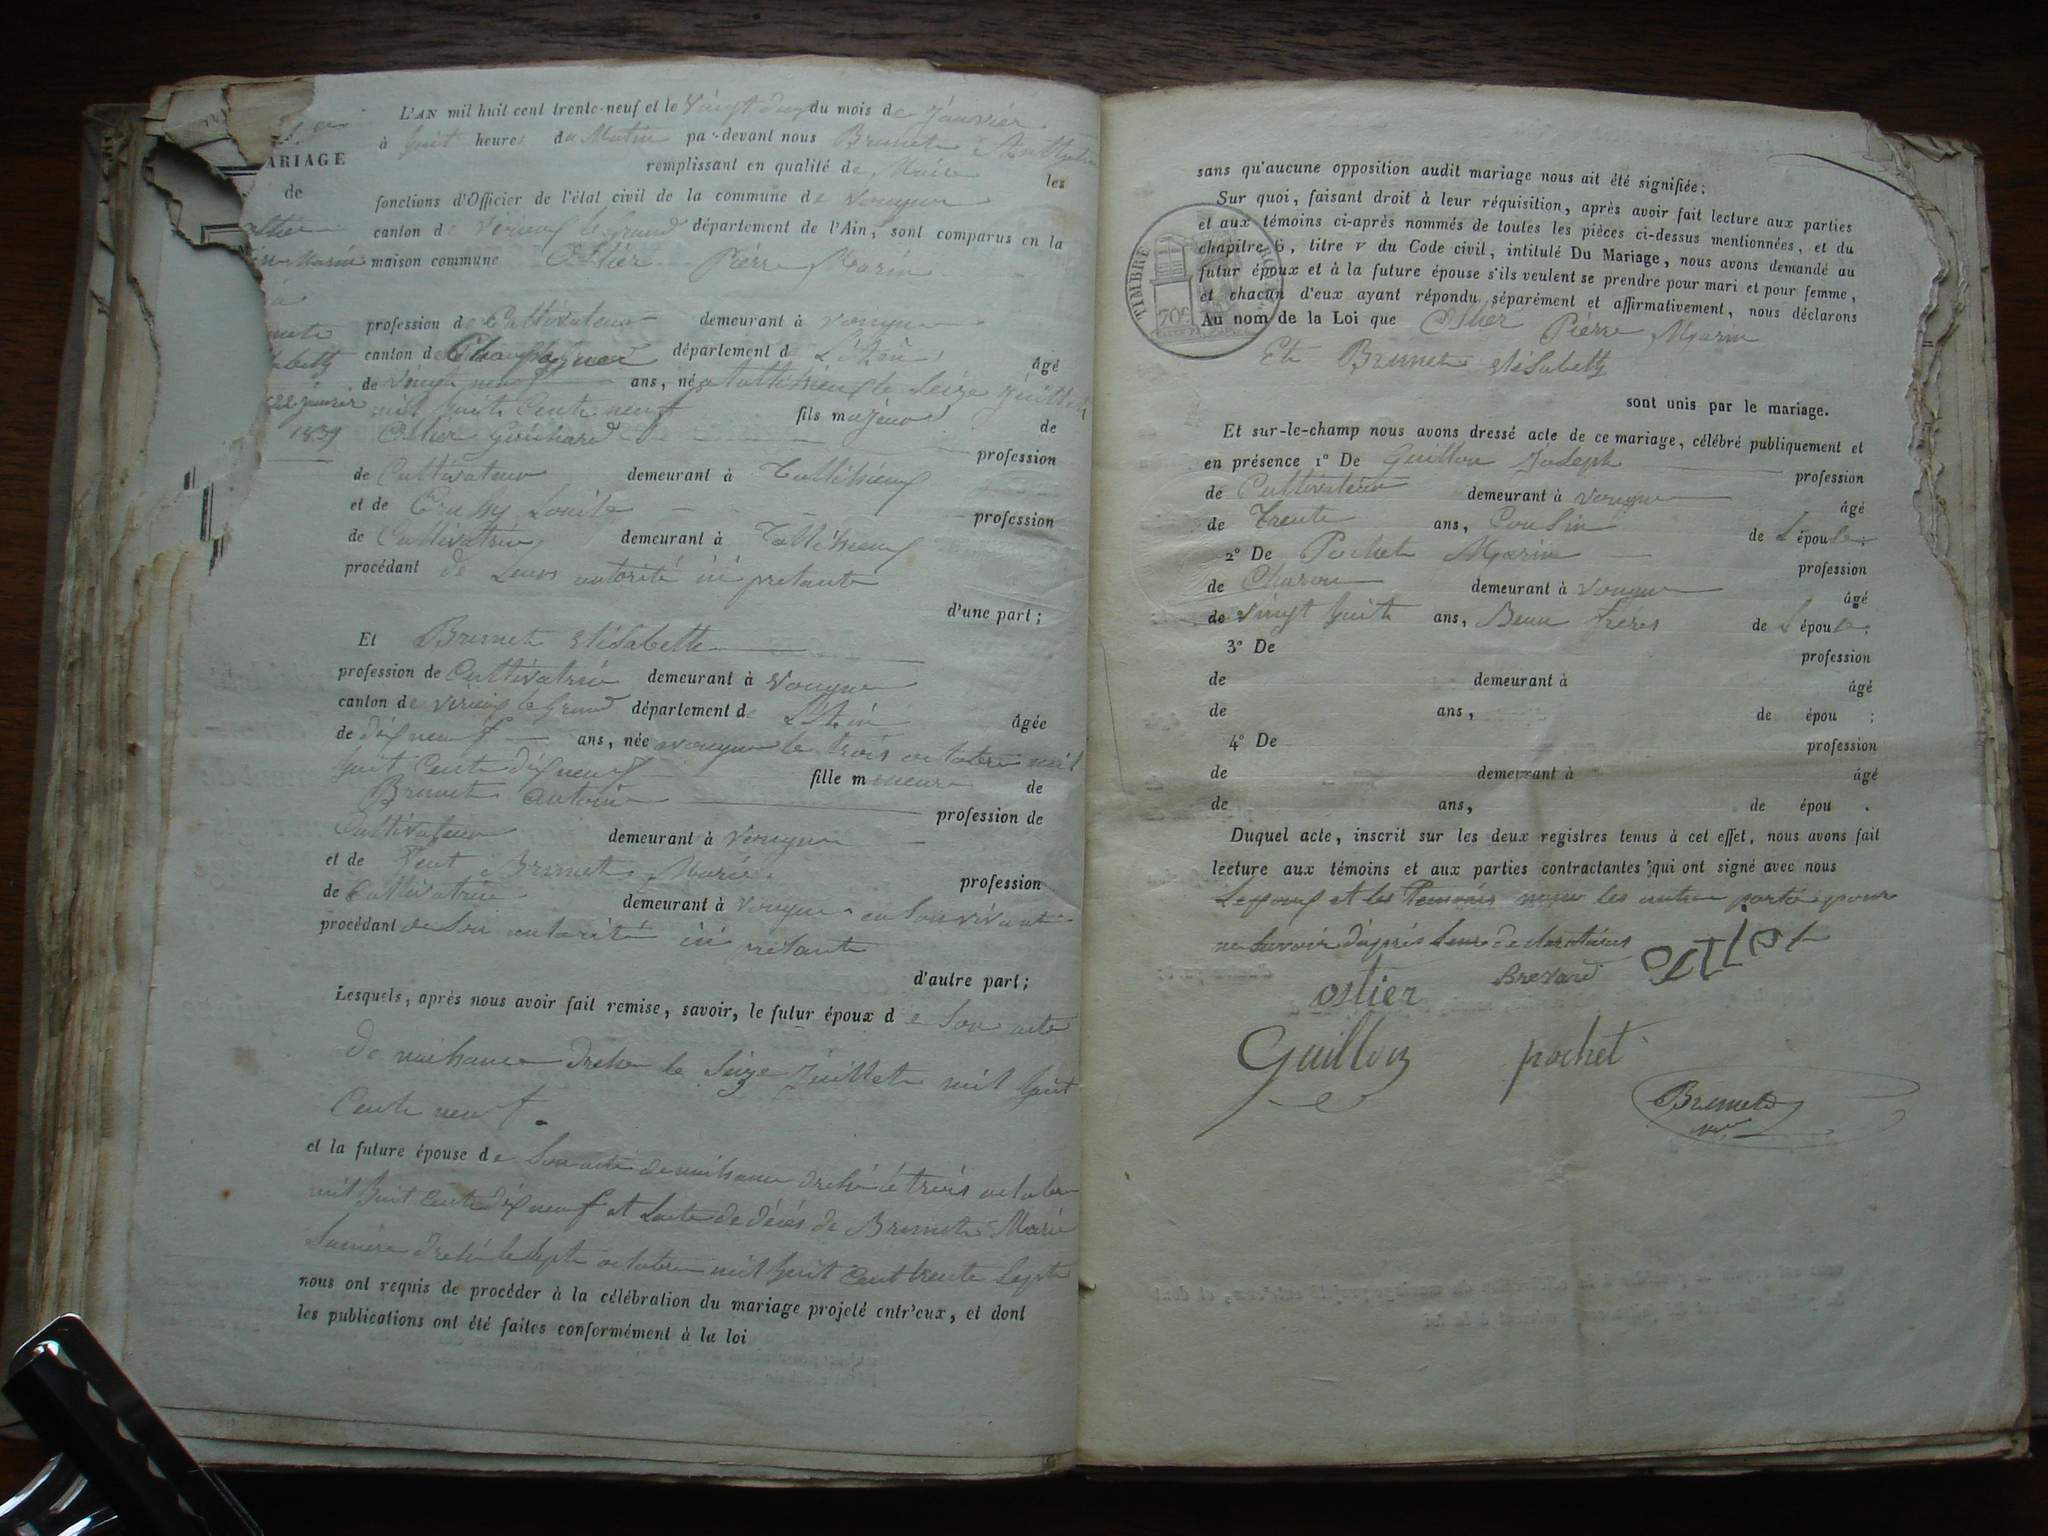 ARIAGE
de
22 janvier
1839
L'AN mil huit cent trente-neuf et le Vingt deux du mois de Janvier
à huit heures du Matin par-devant nous Brunet
remplissant en qualité de Maire les
fonctions d'Officier de l'état civil de la commune de Vongne
canton de Virieux le Grand département de l'Ain, sont comparus en la
maison commune Ostier Pierre Marin
profession de Cultivateur demeurant à Vongne
canton de Champagne département de L'Ain, âgé
de Vingt neuf ans, né a tallissieux le Seize Juillet
mil huit Cent neuf fils majeur de
Ostier profession
de Cultivateur demeurant à Tallissieux
et de Louise profession
de Cultivatrice demeurant à Tallissieux
procédant de Leurs autorité ici presente
d'une part;
Et Brunet Elisabette
profession de Cultivatrice demeurant à Vongne
canton de Virieux le Grand département de L'Ain âgée
de dix neuf ans, née a vongne le trois octobre mil
huit Cent dix neuf fille mineure de
Brunet Antoine profession de
Cultivateur demeurant à Vongne
et de Feut Brunet Marie profession
de Cultivatrice demeurant à Vongne en Son vivant
procédant de Son autorité ici presante
d'autre part;
Lesquels, après nous avoir fait remise, savoir, le futur époux de Son acte
de naissance dressé le Seize Juillet mil huit
Cent neuf.
et la future épouse de Son acte de naissance dressé le trois octobre
mil huit Cent dix neuf et Lacte de décès de Brunet Marie
Samère dressé le Sept octobre mil huit Cent trente Sept
nous ont requis de procéder à la célébration du mariage projeté entr'eux, et dont
les publications ont été faites conformément à la loi
sans qu'aucune opposition audit mariage nous ait été signifiée;
Sur quoi, faisant droit à leur réquisition, après avoir fait lecture aux parties
et aux témoins ci-après nommés de toutes les pièces ci-dessus mentionnées, et du
chapitre 6, titre v du Code civil, intitulé Du Mariage, nous avons demandé au
futur époux et à la future épouse s'ils veulent se prendre pour mari et pour femme,
et chacun d'eux ayant répondu séparément et affirmativement, nous déclarons
Au nom de la Loi que Ostier Pierre Marin
Et Brunet Elisabette
TIMBRE ROYAL
70c
sont unis par le mariage.
Et sur-le-champ nous avons dressé acte de ce mariage, célébré publiquement et
en présence 1° De Guillon Joseph profession
de Cultivateur demeurant à Vongne âgé
de Trente ans, Cousin de L'épouse;
2° De Pochet Marin profession
de Charon demeurant à Vongne âgé
de Vingt huit ans, Beau Frères de L'épouse;
3° De profession
de demeurant à âgé
de ans, de épou ;
4° De profession
de demeurant à âgé
de ans, de épou .
Duquel acte, inscrit sur les deux registres tenus à cet effet, nous avons fait
lecture aux témoins et aux parties contractantes qui ont signé avec nous
Lepoux et les Temoins non les autre partie pour
ne Savoir d'après Leur declarations
ostier
Guillon pochet
Brunet